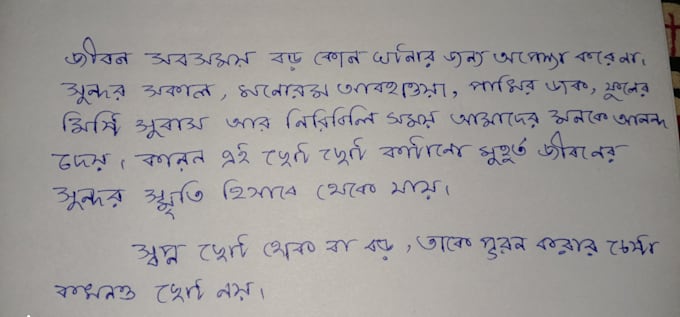 জীবন সবসময় বড় কোন ঘটনার জন্য অপেক্ষা করেনা।
সুন্দর সকাল, মনোরম আবহাওয়া, পাখির ডাক, ফুলের
মিষ্টি সুবাস আর নিরিবিলি সময় আমাদের মনকে আনন্দ
দেয়। কারন এই ছোট ছোট কাটানো মুহূর্ত জীবনের
সুন্দর স্মৃতি হিসাবে থেকে যায়।
স্বপ্ন ছোট হোক বা বড়, তাকে পুরন করার চেষ্টা
কখনও ছোট নয়।